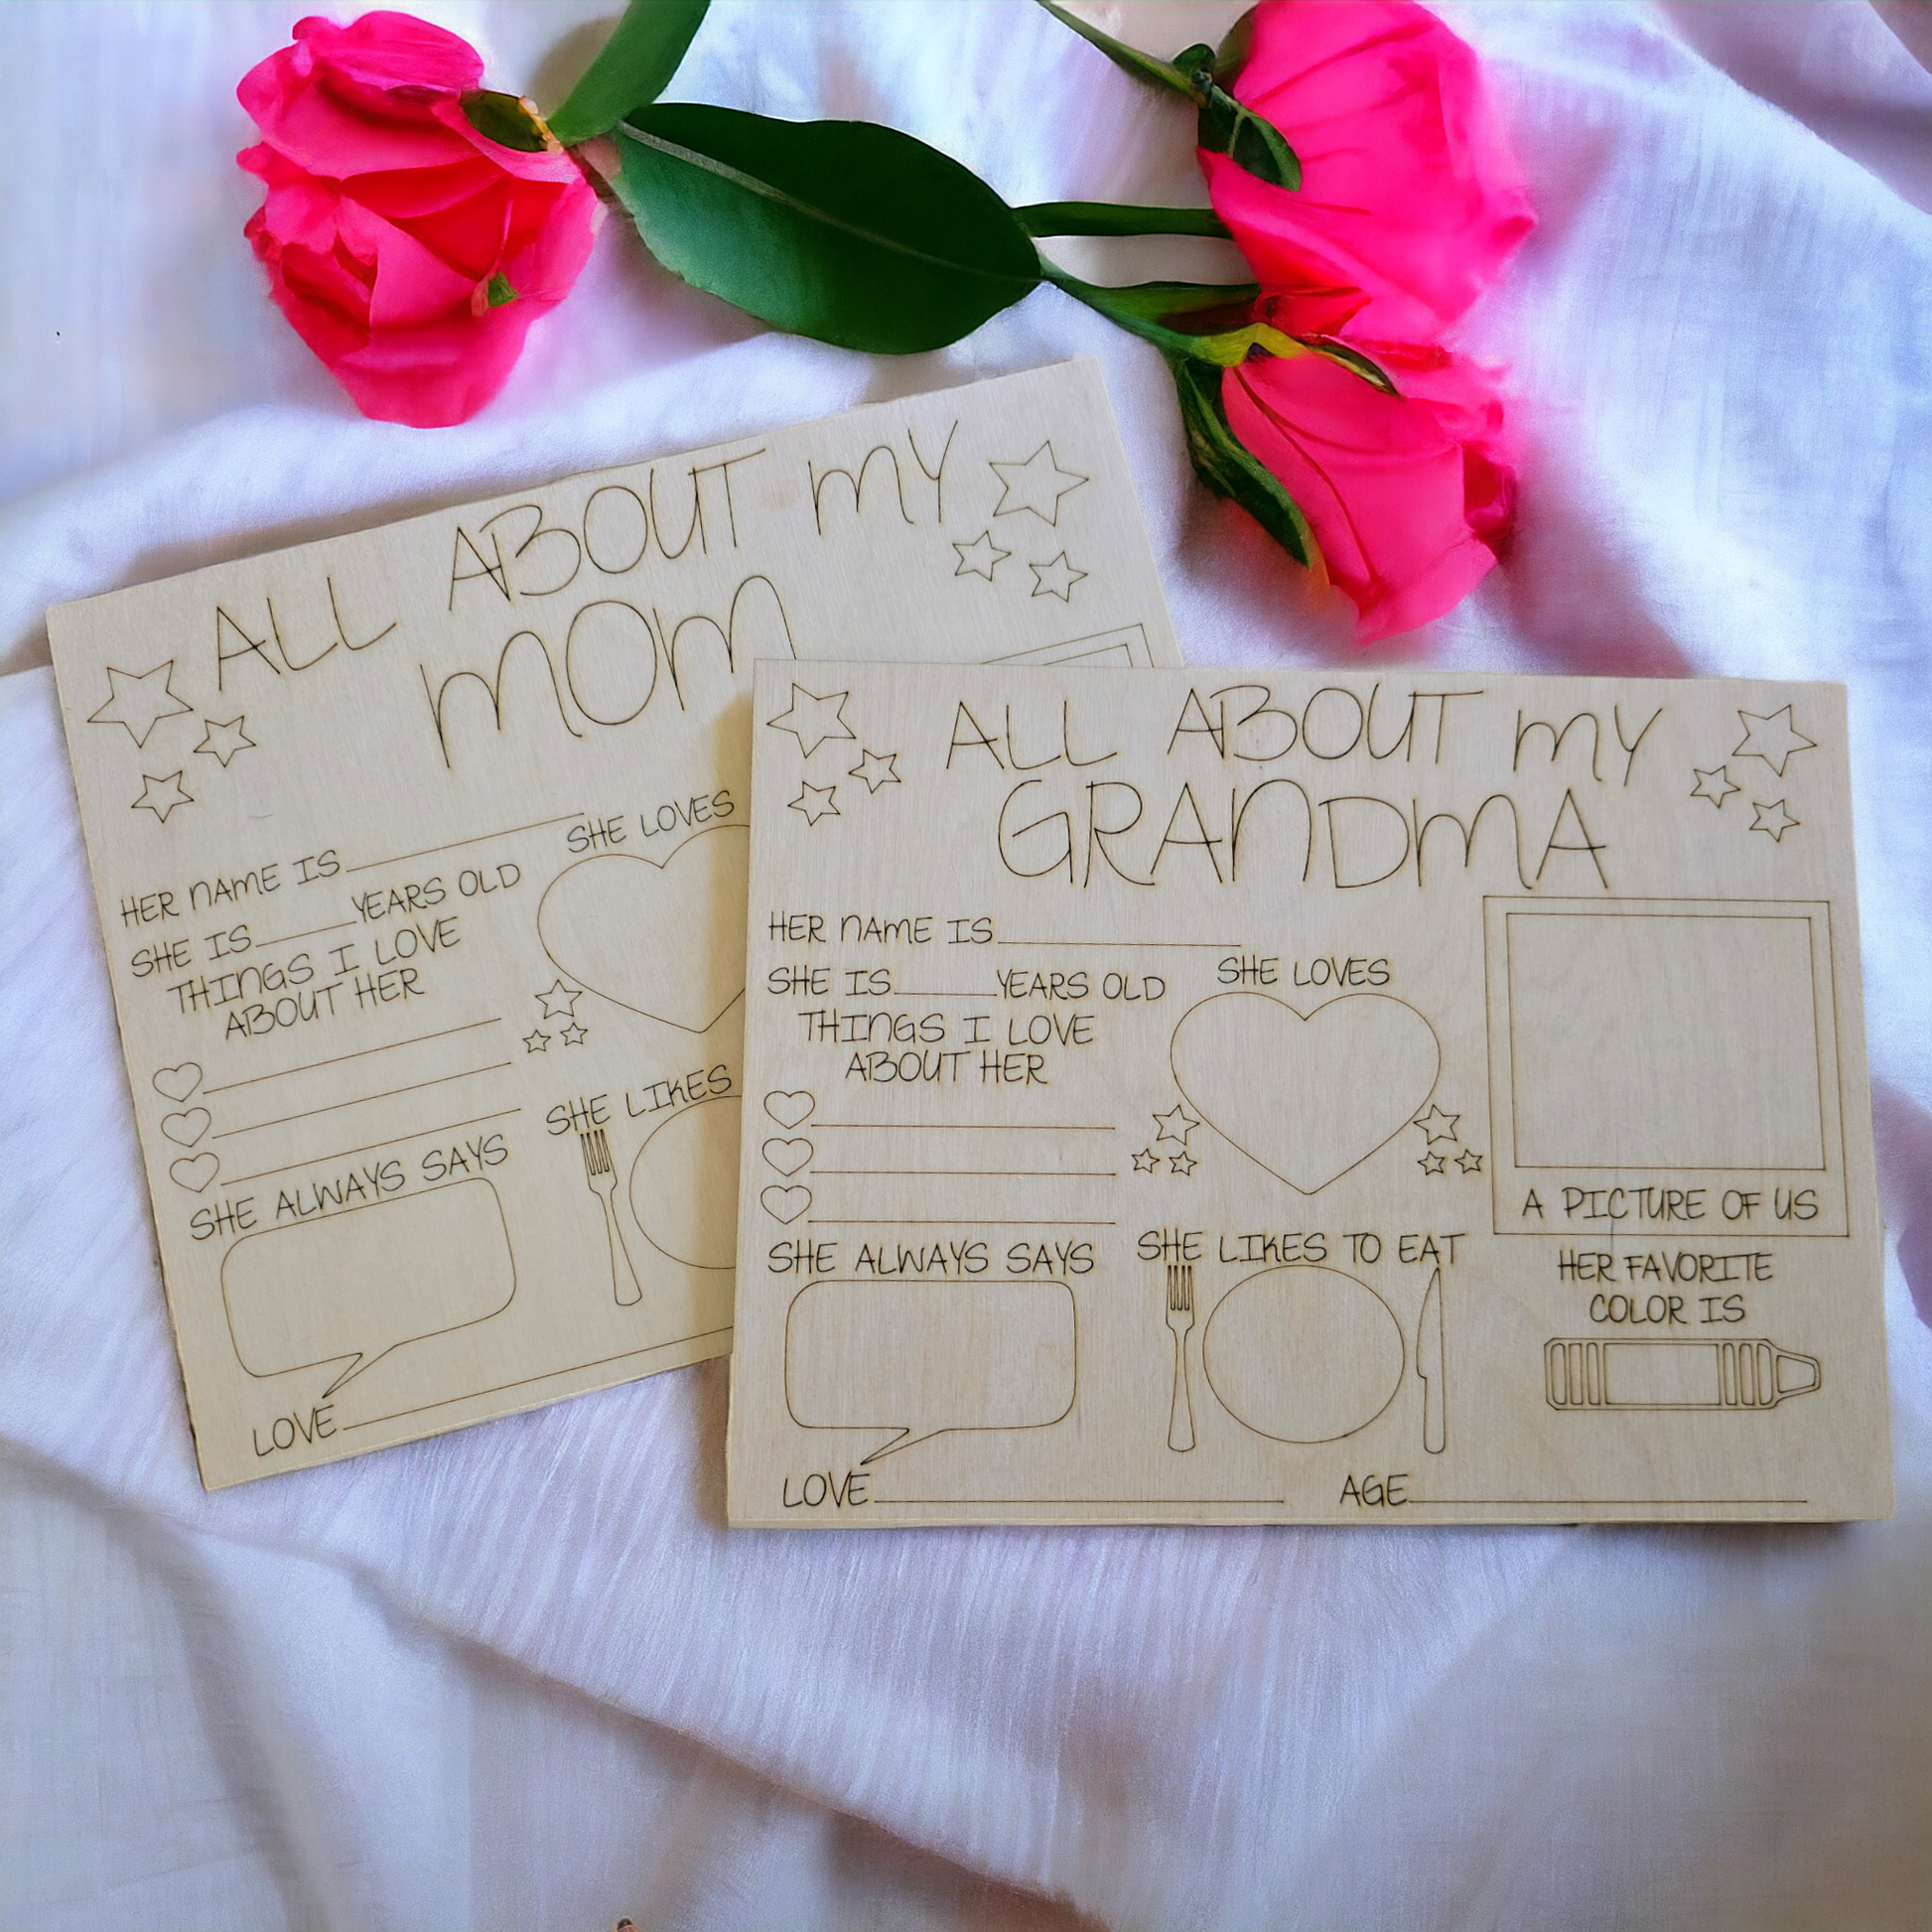 ALL ABOUT MY
MOM
HER NAME IS
SHE IS YEARS OLD
THINGS I LOVE
ABOUT HER
SHE ALWAYS SAYS
SHE LOVES
SHE LIKES
LOVE
ALL ABOUT MY
GRANDMA
HER NAME IS
SHE IS YEARS OLD
THINGS I LOVE
ABOUT HER
SHE ALWAYS SAYS
SHE LOVES
SHE LIKES TO EAT
A PICTURE OF US
HER FAVORITE
COLOR IS
LOVE AGE